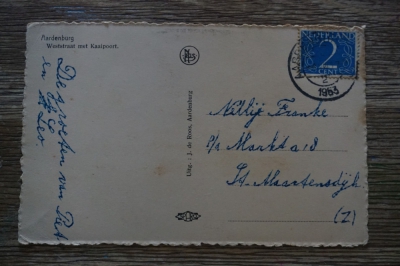 Aardenburg
Weststraat met Kaaipoort.
De groeten van Piet
en
Leo.
Uitg.: J. de Roos, Aardenburg
NEDERLAND
2
CENT
1953
Nellie Franke
p/a Markt a 18
St. Maartensdijk
(Z)